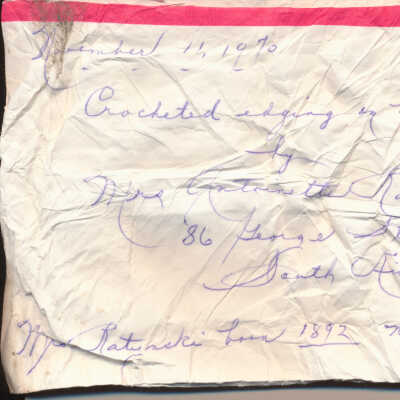 November 11, 1970
Crocheted edging
by
Mrs Antoinette
'86 George St
South
Mrs Ratynski born 1892